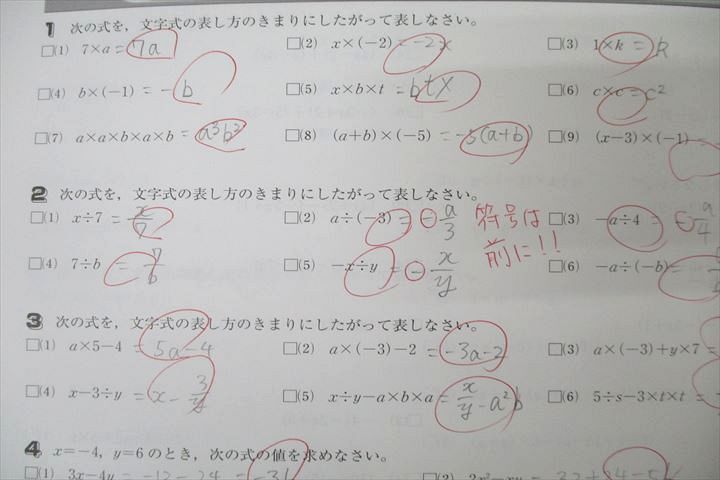 1 次の式を，文字式の表し方のきまりにしたがって表しなさい。
□(1) 7×a = 7a □(2) x×(−2) = −2x □(3) 1×k = k
□(4) b×(−1) = −b □(5) x×b×t = btx □(6) c×c = c²
□(7) a×a×b×a×b = a³b² □(8) (a+b)×(−5) = −5(a+b) □(9) (x−3)×(−1) =
2 次の式を，文字式の表し方のきまりにしたがって表しなさい。
□(1) x÷7 = x/7 □(2) a÷(−3) = −a/3 符号は □(3) −a÷4 = −a/4
□(4) 7÷b = 7/b □(5) −x÷y = −x/y 前に!! □(6) −a÷(−b) =
3 次の式を，文字式の表し方のきまりにしたがって表しなさい。
□(1) a×5−4 = 5a−4 □(2) a×(−3)−2 = −3a−2 □(3) a×(−3)+y×7 =
□(4) x−3÷y = x−3/y □(5) x÷y−a×b×a = x/y−a²b □(6) 5÷s−3×t×t =
4 x=−4，y=6のとき，次の式の値を求めなさい。
□(1) 3x−4y = −12−24